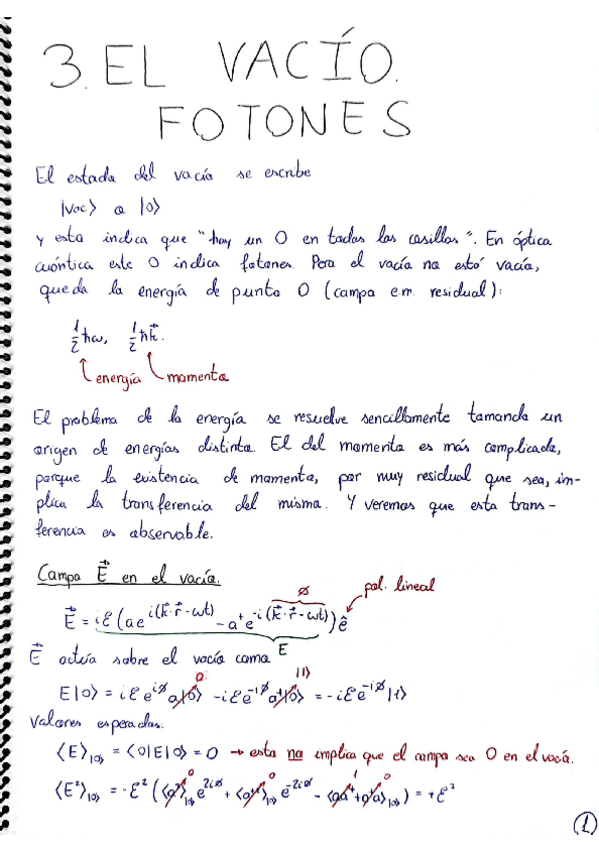 3. EL VACÍO.
FOTONES
El estado del vacío se escribe
|vac⟩ o |0⟩
y esto indica que "hay un 0 en todas las casillas". En óptica
cuántica este 0 indica fotones. Pero el vacío no está vacío,
queda la energía de punto 0 (campo e.m. residual):
½ħω, ½ħk⃗.
energía momento
El problema de la energía se resuelve sencillamente tomando un
origen de energías distinto. El del momento es más complicado,
porque la existencia de momento, por muy residual que sea, im-
plica la transferencia del mismo. Y veremos que esta trans-
ferencia es observable.
Campo E⃗ en el vacío.
ø pol. lineal
E⃗ = iℰ(a e^{i(k⃗·r⃗-ωt)} - a⁺e^{-i(k⃗·r⃗-ωt)})ê
E
E⃗ actúa sobre el vacío como
0 |1⟩
E|0⟩ = iℰe^{iø}a|0⟩ - iℰe^{-iø}a⁺|0⟩ = -iℰe^{-iø}|1⟩
Valores esperados:
⟨E⟩_{|0⟩} = ⟨0|E|0⟩ = 0 → esto no implica que el campo sea 0 en el vacío.
0 0 1 0
⟨E²⟩_{|0⟩} = -ℰ²(⟨a²⟩_{|0⟩}e^{2iø} + ⟨a⁺²⟩_{|0⟩}e^{-2iø} - ⟨aa⁺+a⁺a⟩_{|0⟩}) = +ℰ²
1